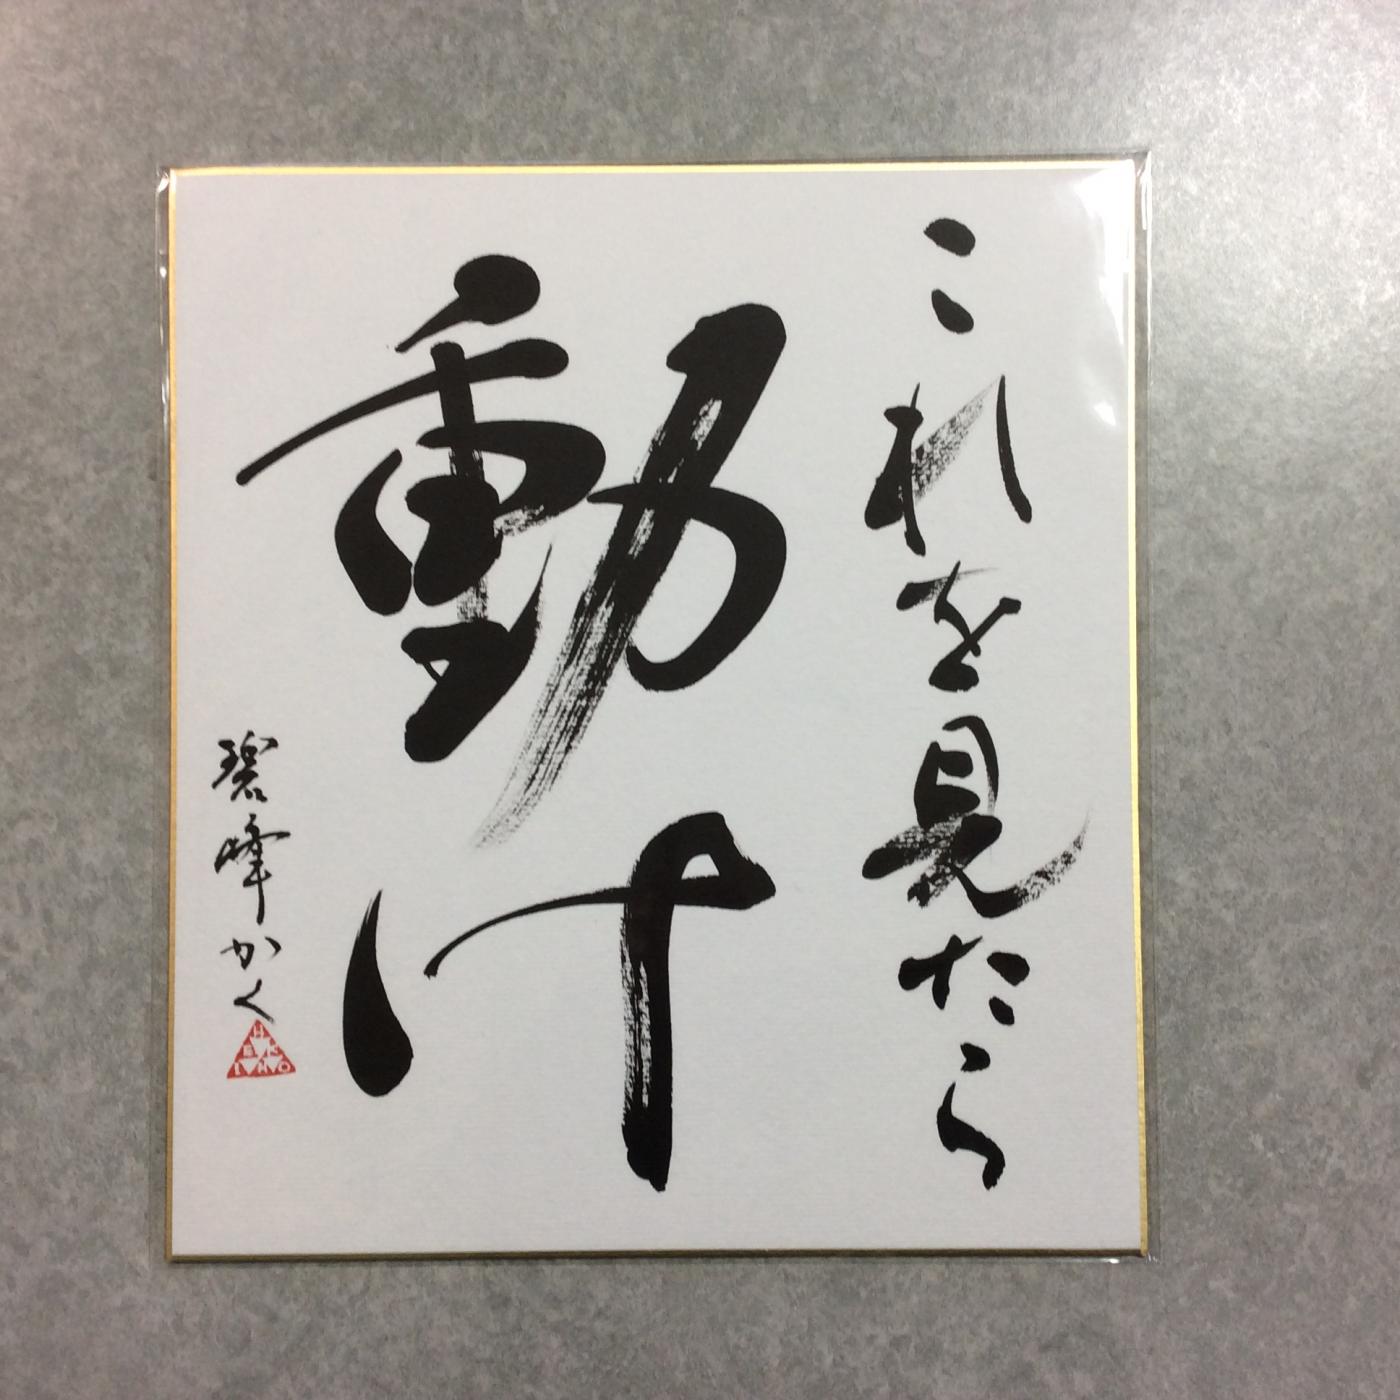 これを見たら
動け
碧峰かく
HEKIHO